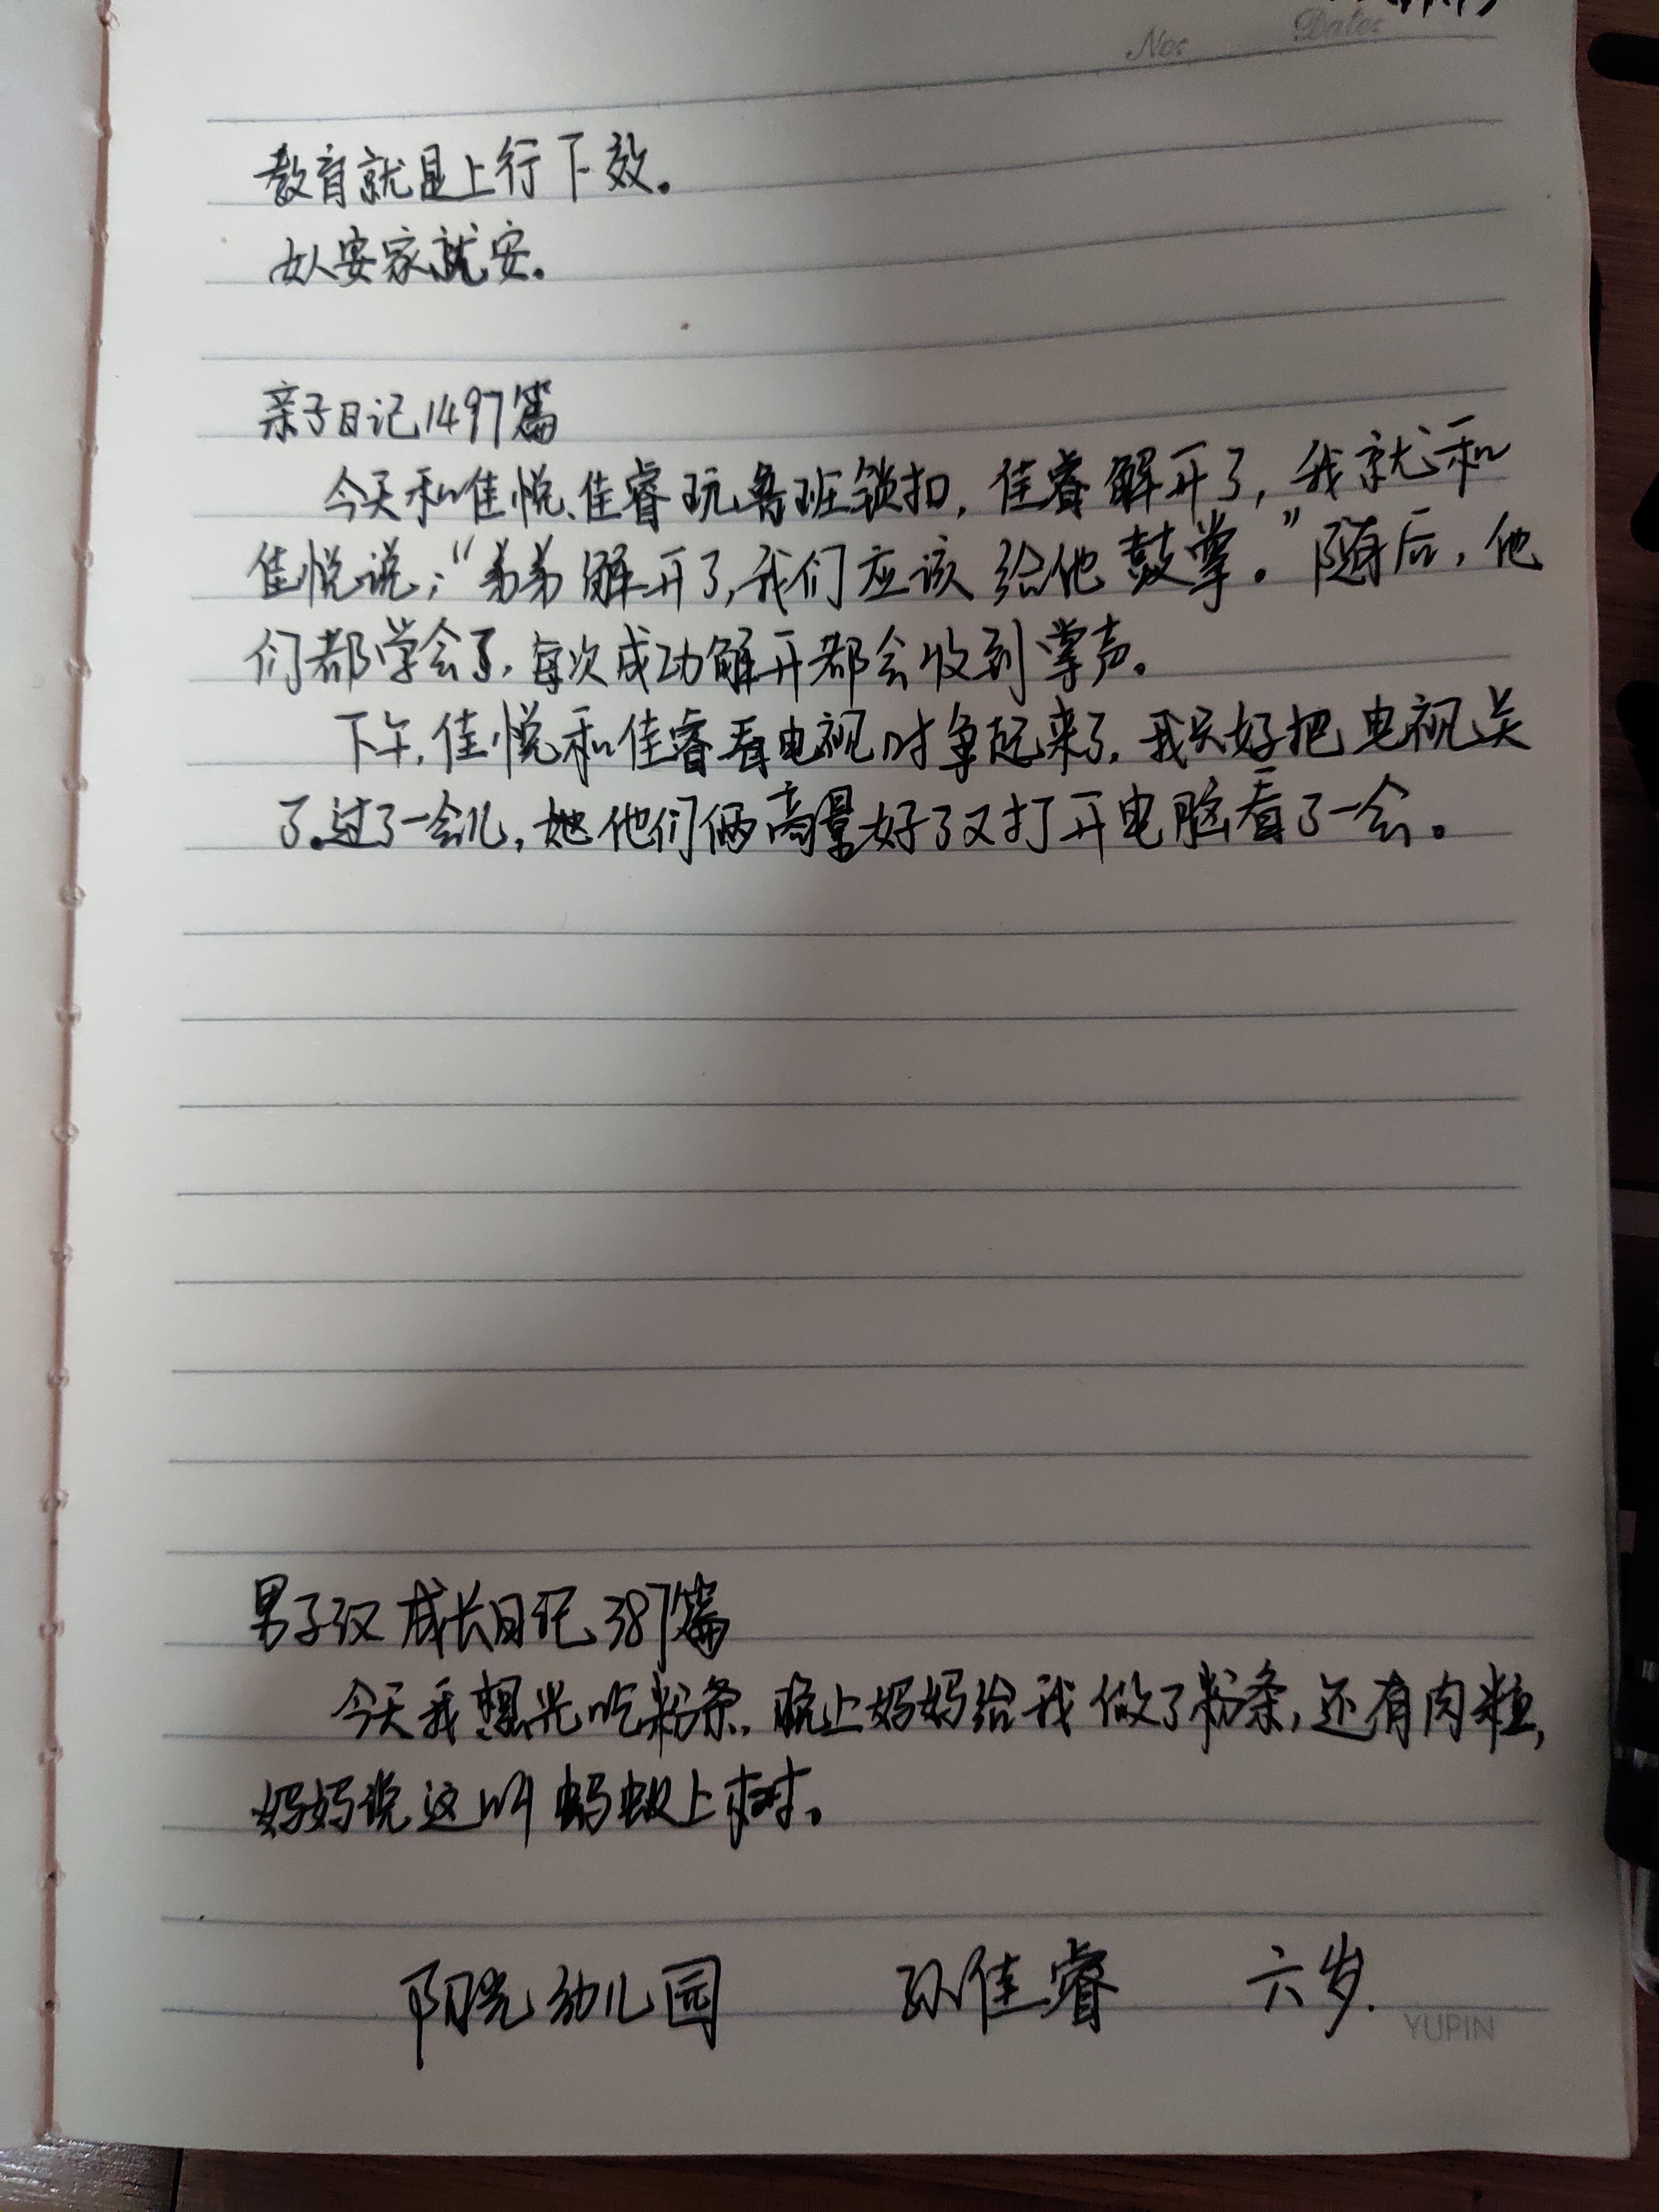 No:
Date:
教育就是上行下效。
女人安家就安。
亲子日记1497篇
今天和佳悦、佳睿玩鲁班锁扣，佳睿解开了，我就和
佳悦说：“弟弟解开了，我们应该给他鼓掌。”随后，他
们都学会了，每次成功解开都会收到掌声。
下午，佳悦和佳睿看电视时争起来了，我只好把电视关
了。过了一会儿，她他们俩商量好了又打开电脑看了一会。
男子汉成长日记387篇
今天我想光吃粉条，晚上妈妈给我做了粉条，还有肉粒，
妈妈说这叫蚂蚁上树。
阳光幼儿园 孙佳睿 六岁.
YUPIN